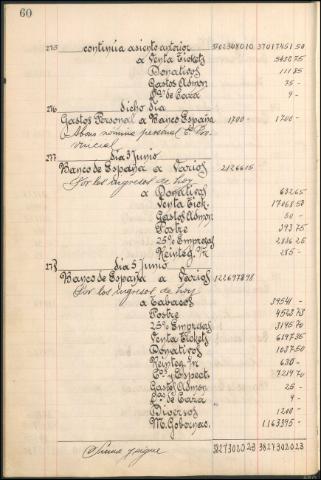 60
275 continúa asiento anterior 3702308010 3701745150
a Venta Tickets 543275
Donativos 11185
Gastos Admon 75 -
9 -
276 dicho día
Gastos Personal a Banco España 1700 - 1700 -
Abono nómina personal
277 Día 3 Junio
Banco de España a Varios 2126615
Por los ingresos de hoy
a Donativos 63265
Venta Tick. 1706850
Gastos Admon 50 -
Postre 39375
25% Empresas 283625
Reinteg. 285 -
278 Día 5 Junio
Banco de España a Varios 122697898
Por los ingresos de hoy
a Tabacos 39541 -
Postre 452873
25% Empresas 314570
Venta Tickets 619735
Donativos 103750
Reinteg. 630 -
Espect. 721970
Gastos Admon 25 -
9 -
Diversos 1200 -
M. Gobernac. 1.163395 -
Suma y sigue 3827302023 3827302023